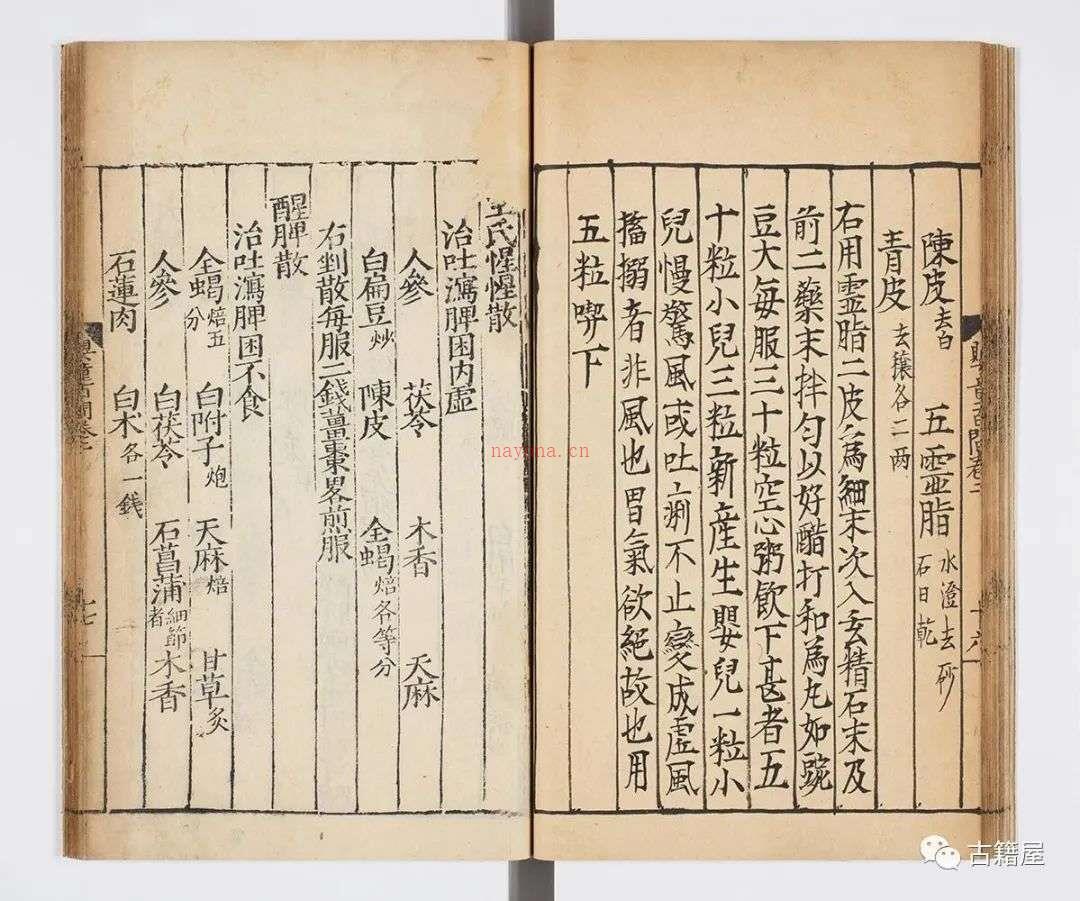 陳皮去白 五靈脂水澄去砂石日乾
青皮去穰各二两
右用靈脂二皮為細末次入玄精石末及
前二藥末拌匀以好醋打和為丸如豌
豆大每服三十粒空心粥飲下甚者五
十粒小兒三粒新産生嬰兒一粒小
兒慢驚風或吐痢不止變成虛風
搐搦者非風也胃氣欲絕故也用
五粒喫下
十六
王氏惺惺散
治吐瀉脾困内虛
人參 茯苓 木香 天麻
白扁豆炒 陳皮 全蝎焙各等分
右剉散每服二錢薑棗畧煎服
醒脾散
治吐瀉脾困不食
全蝎焙五分 白附子炮 天麻焙 甘草炙
人參 白茯苓 石菖蒲細節者 木香
石蓮肉 白术各一錢
十七
nayona.cn
古籍屋